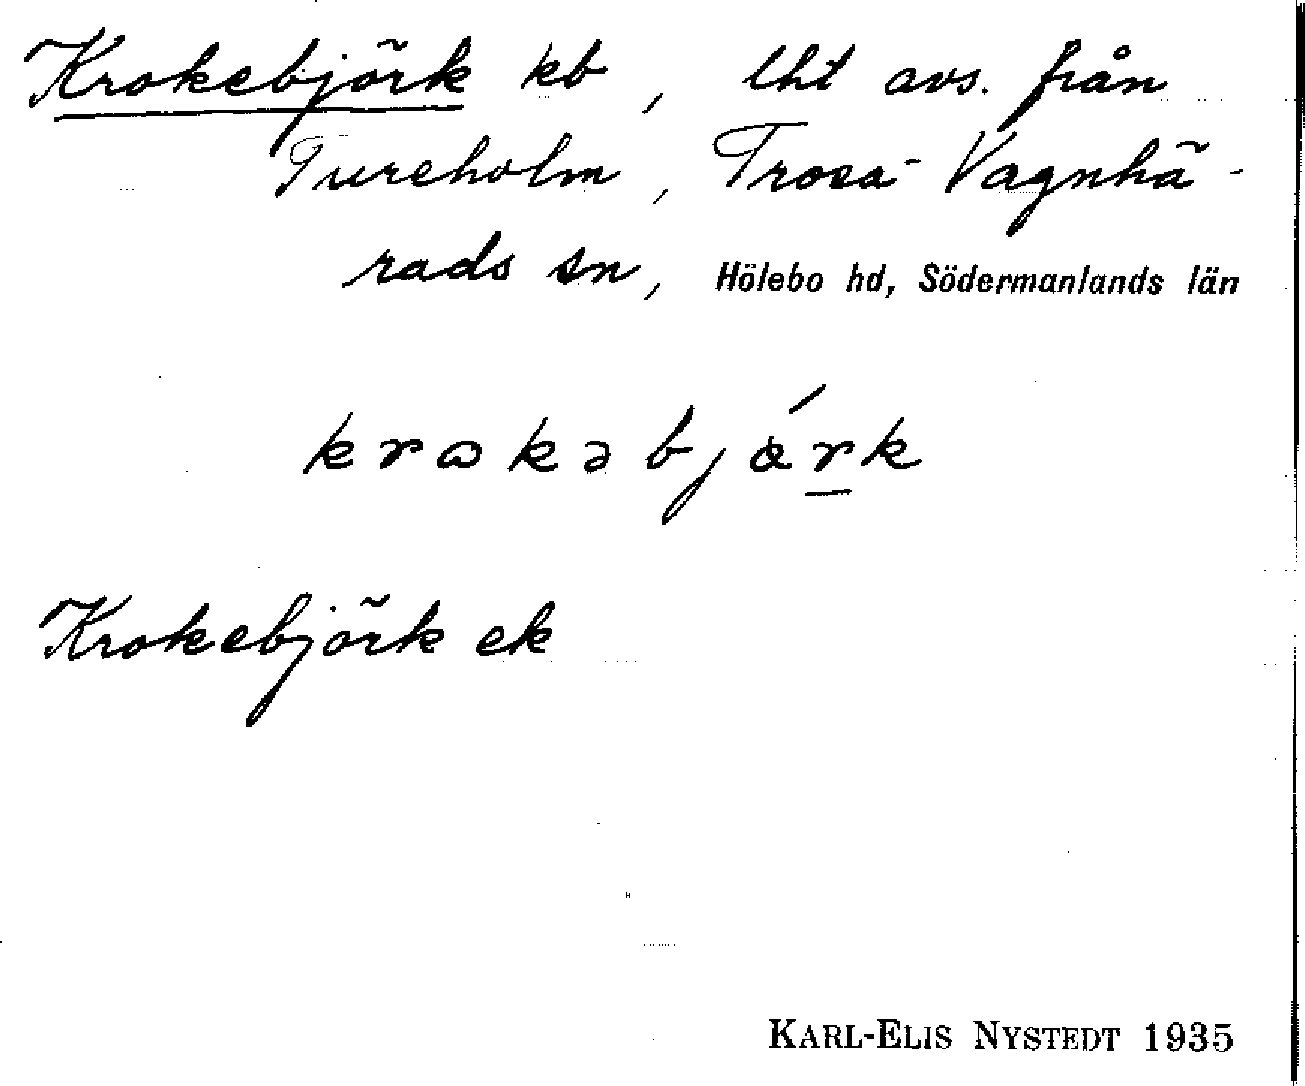 Krokebjörk kb, lht avs. från
Tureholm, Trosa-Vagnhä-
rads sn, Hölebo hd, Södermanlands län
krωkəbjǿrk
Krokebjörk ek
KARL-ELIS NYSTEDT 1935